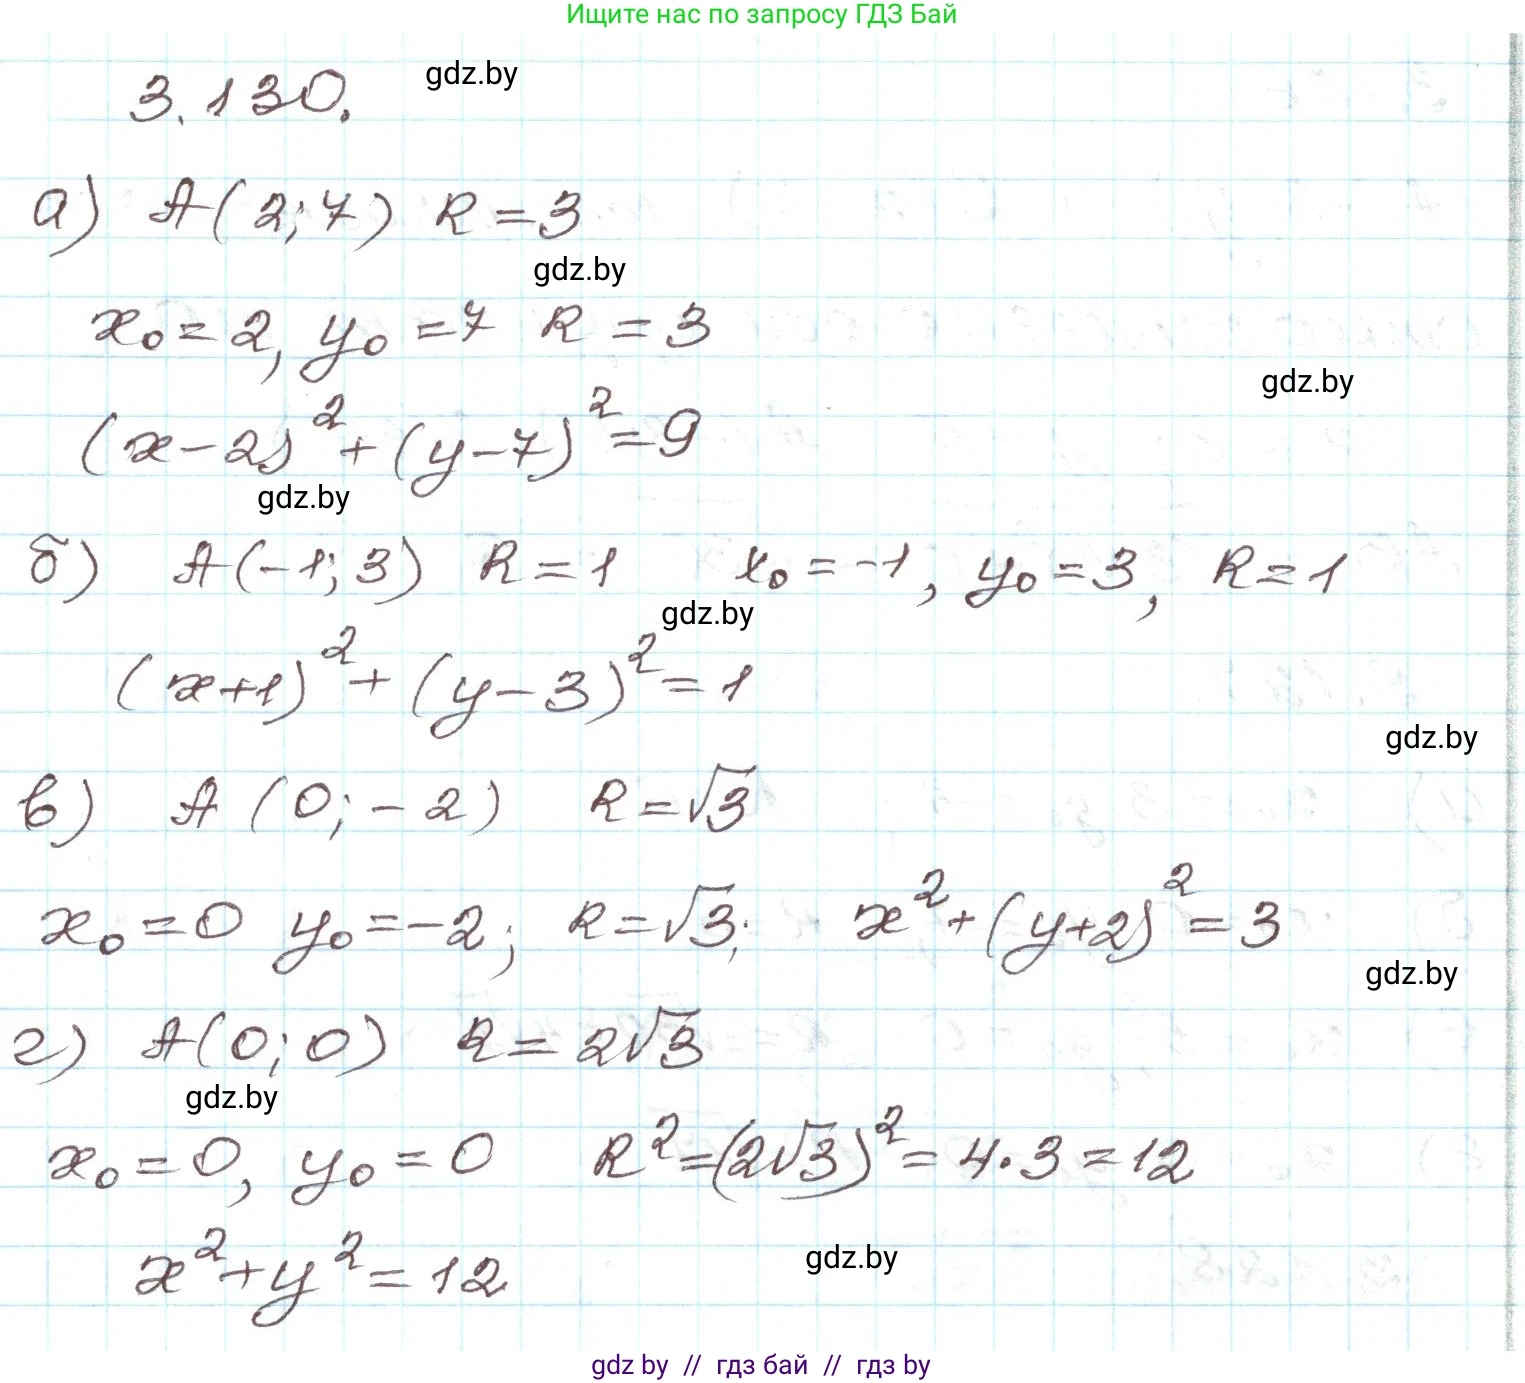 Ищите нас по запросу ГДЗ Бай
3.130. gdz.by
а) A(2;7) R=3
gdz.by
x₀=2, y₀=7 R=3
gdz.by
(x-2)²+(y-7)²=9
gdz.by
б) A(-1;3) R=1 x₀=-1, y₀=3, R=1
gdz.by
(x+1)²+(y-3)²=1
gdz.by
в) A(0;-2) R=√3
x₀=0 y₀=-2; R=√3; x²+(y+2)²=3
gdz.by
г) A(0;0) R=2√3
gdz.by
x₀=0, y₀=0 R²=(2√3)²=4·3=12
x²+y²=12
gdz.by
gdz by // гдз бай // гдз by